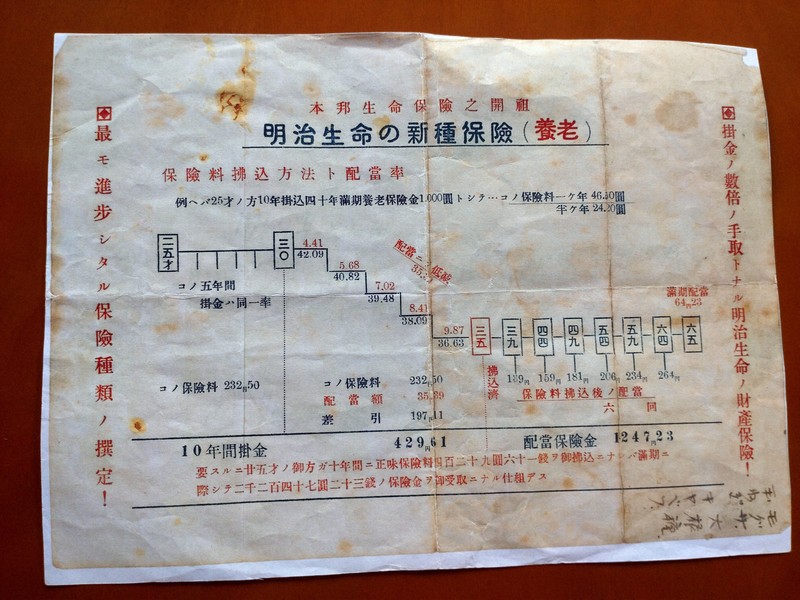 本邦生命保險之開祖
明治生命の新種保險(養老)
掛金ノ數倍ノ手取トナル明治生命ノ財產保險!
保險料拂込方法ト配當率
例ヘバ25才ノ方10年掛込四十年滿期養老保險金1.000圓トシラ…コノ保險料一ケ年46.50圓
半ケ年24.20圓
二五才
三〇
4.41
42.09
5.68
40.82
7.02
39.48
8.41
38.09
9.87
36.63
配當ニ
低減
三五
三九
四四
四九
五四
五九
六四
六五
滿期配當
64円23
コノ五年間
掛金ハ同一率
拂込済
139円 159円 181円 206円 234円 264円
保險料拂込後ノ配當
六回
コノ保險料 232円50
コノ保險料 232円50
配當額 35.39
差引 197円11
10年間掛金 429円61
配當保險金 1247円23
要スルニ廿五才ノ御方ガ十年間ニ正味保險料四百二十九圓六十一錢ヲ御拂込ニナシバ滿期ニ
際シラ二千二百四十七圓二十三錢ノ保險金ヲ御受取ニナル仕組デス
最モ進步シタル保險種類ノ撰定!